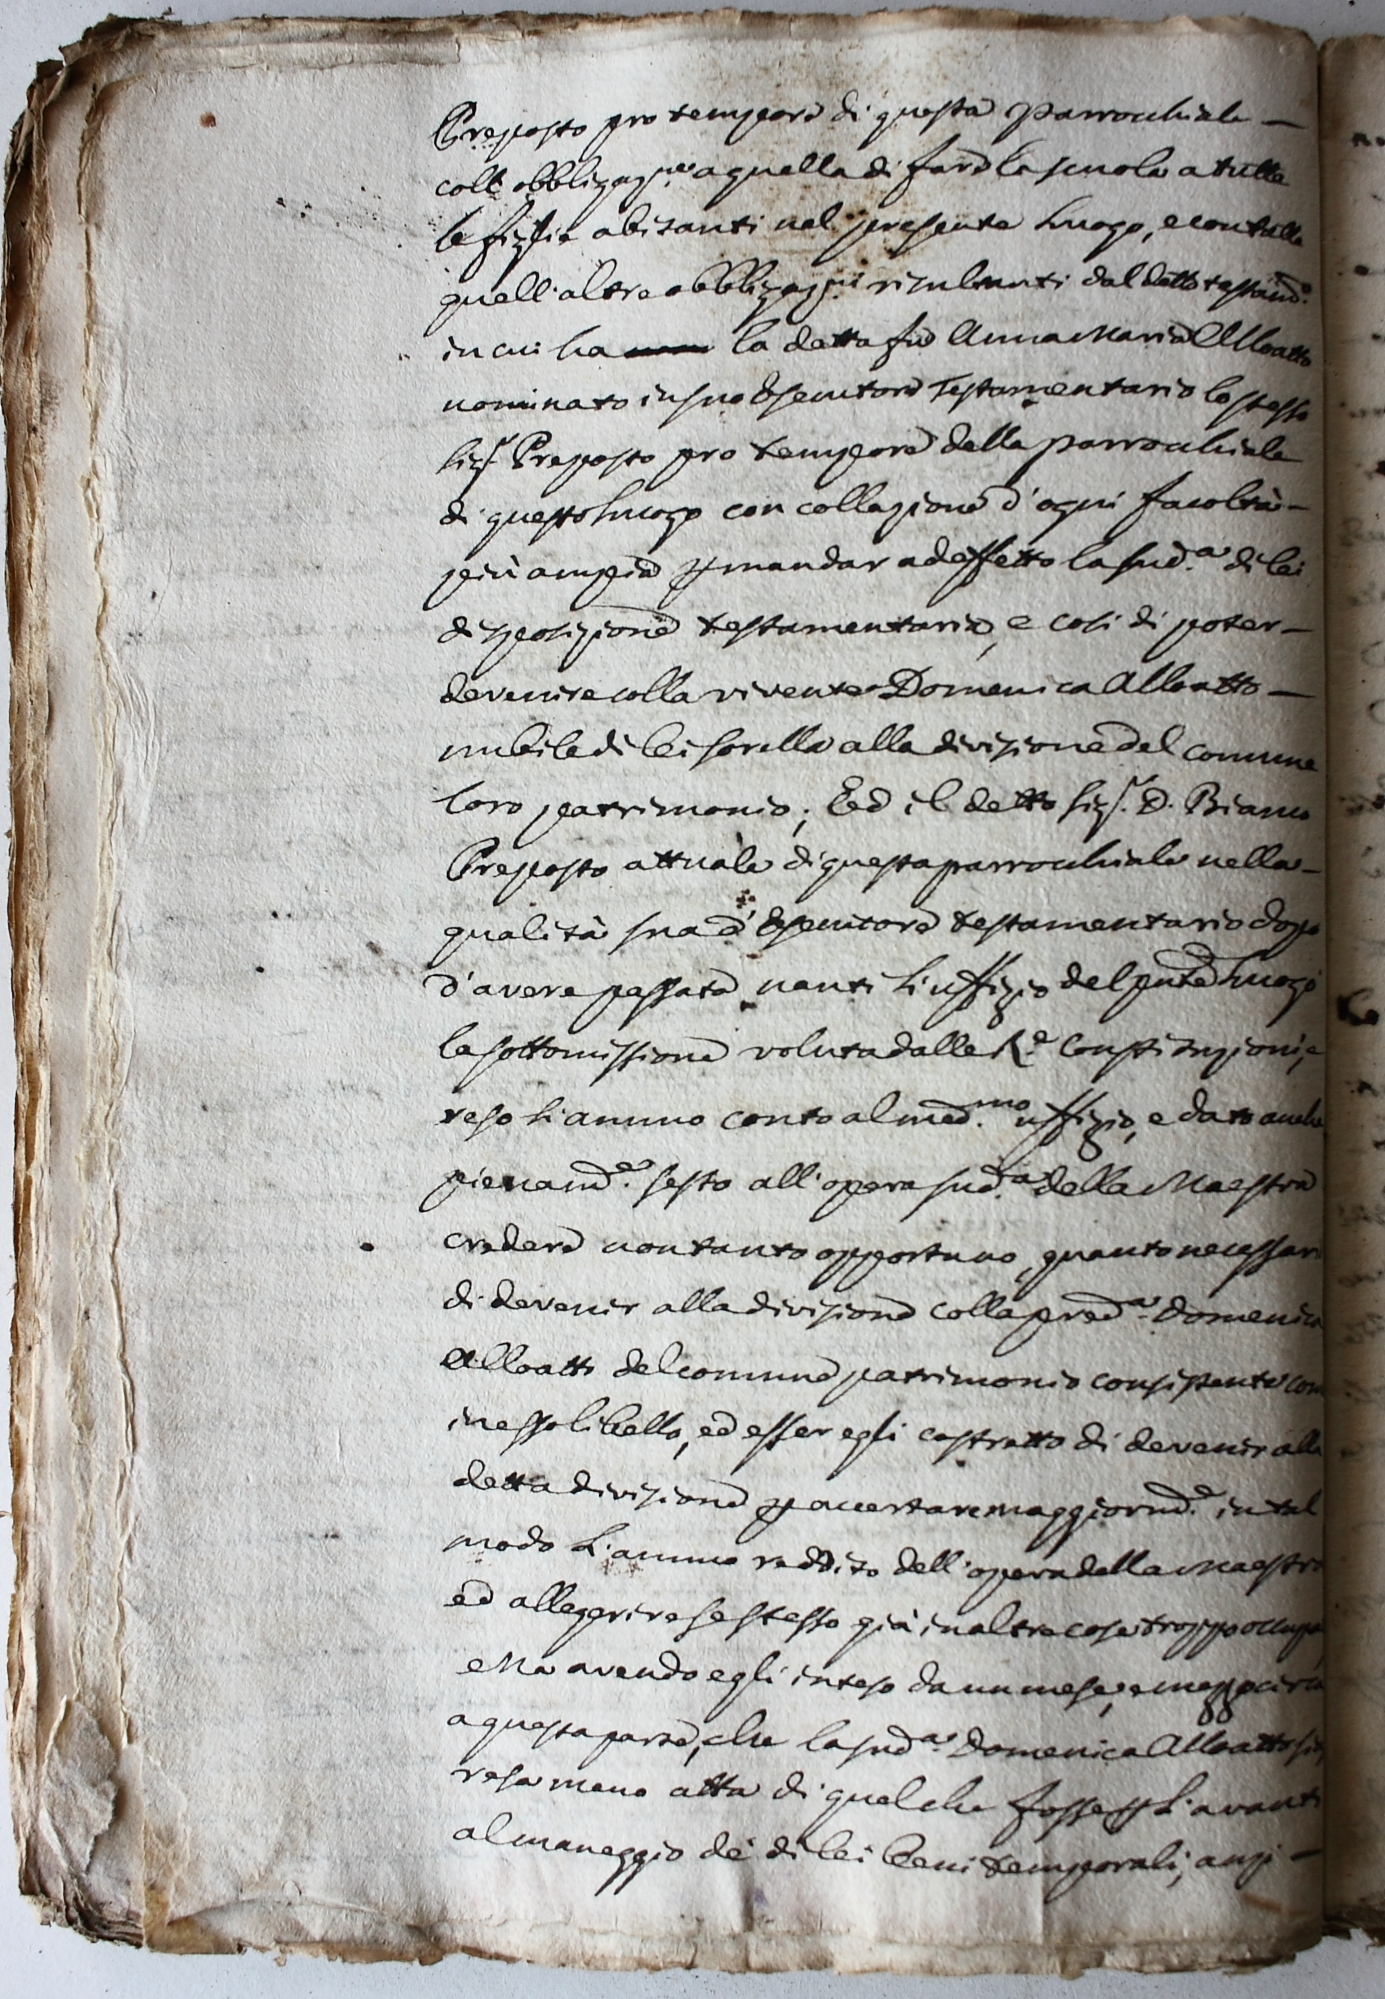 Preposto pro tempore di questa Parrochiale —
coll obbligaz.ne a quella di fare la scuola a tutte
le figlie abitanti nel presente Luogo, e con tutte
quell'altre obbligaz.ni risultanti dal detto testam.o
in cui ha la detta fu Anna Maria Alloatto
nominato in suo Esecutore Testamentario lo stesso
Sig.r Preposto pro tempore della parrochiale
di questo Luogo con collazione d'ogni facoltà —
più ampia p mandar ad effetto la sud.a di lei
disposizione testamentaria, e cosi di poter —
devenire colla vivente Domenica Alloatto —
nubile di lei sorella alla divisione del comune
loro patrimonio; Ed il detto Sig.r D. Bianco
Preposto attuale di questa parrochiale nella —
qualità sua d'Esecutore testamentario dopo
d'avere passata nanti L'uffizio del pnte Luogo
la sottomissione voluta dalle R.e Constituzioni, e
reso L'annuo conto al med.mo uffizio, e dato anche
pienam.e sesto all'opera sud.a della Maestra
credere non tanto opportuno, quanto necessari
di devenir alla divisione colla pred.a Domenica
Alloatti del comune patrimonio consistente com
in esso libello, ed esser egli costretto di devenir alla
detta divisione p accertare maggiorm.e in tal
modo L'annuo reddito dell'opera della Maestra
ed alleggerire se stesso già in altre cose troppo occupa
e Ma avendo egli inteso da un mese, e mezzo circa
a questa parte, che la sud.a Domenica Alloatto sia
resa meno atta di quel che fosse p L'avanti
al maneggio de' di lei beni temporali, anzi —